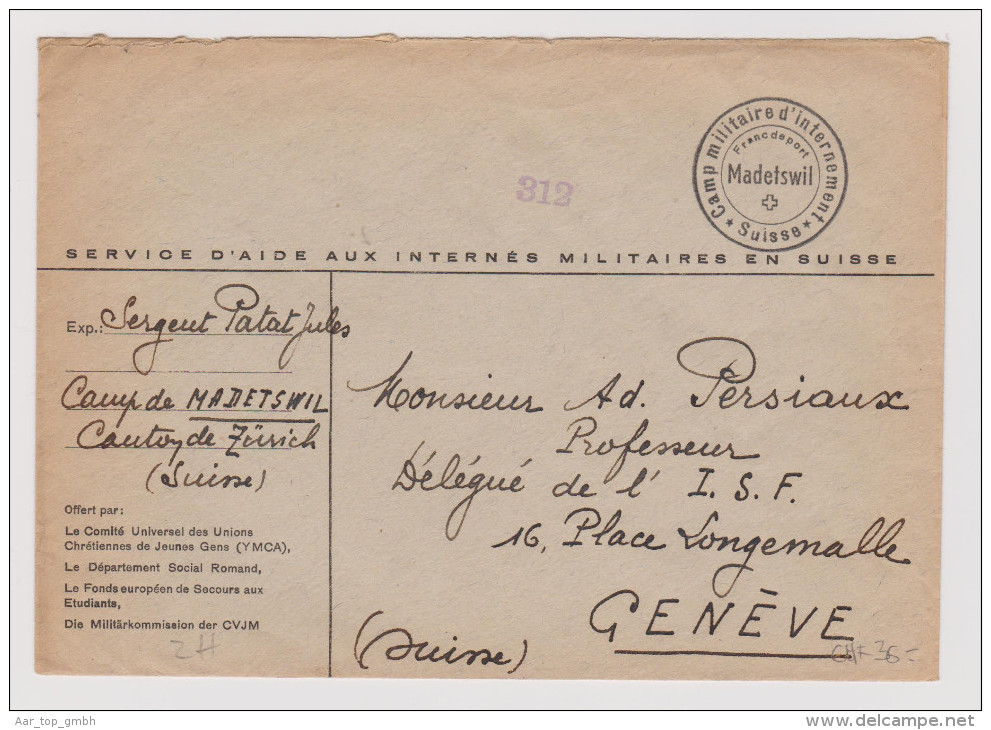 Camp militaire d'internement
Franc de port
Madetswil
Suisse
312
SERVICE D'AIDE AUX INTERNÉS MILITAIRES EN SUISSE
Exp.: Sergent Patat Jules
Camp de MADETSWIL
Canton de Zürich
(Suisse)
Offert par:
Le Comité Universel des Unions
Chrétiennes de Jeunes Gens (YMCA),
Le Département Social Romand,
Le Fonds européen de Secours aux
Etudiants,
Die Militärkommission der CVJM
ZH
Monsieur Ad. Persiaux
Professeur
Délégué de l' I. S. F.
16, Place Longemalle
GENÈVE
(Suisse)
CHF 36-
Aar_top_gmbh
delcampe.net